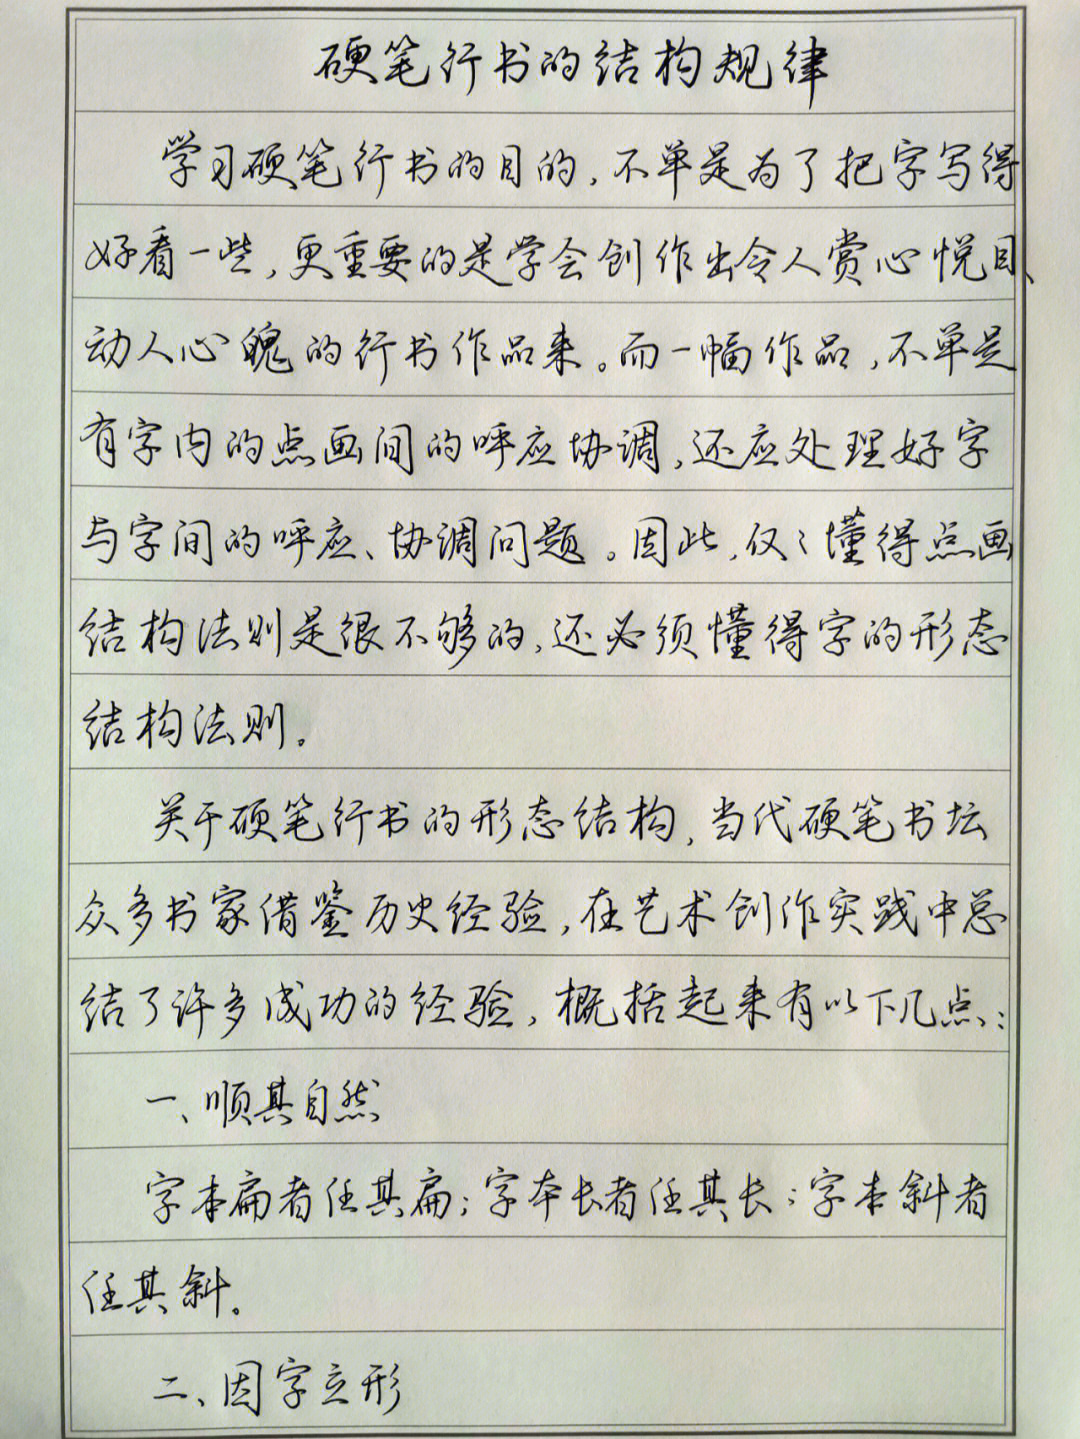 硬笔行书的结构规律
学习硬笔行书的目的,不单是为了把字写得
好看一些,更重要的是学会创作出令人赏心悦目、
动人心魄的行书作品来。而一幅作品,不单是
有字内的点画间的呼应协调,还应处理好字
与字间的呼应、协调问题。因此,仅仅懂得点画
结构法则是很不够的,还必须懂得字的形态
结构法则。
关于硬笔行书的形态结构,当代硬笔书坛
众多书家借鉴历史经验,在艺术创作实践中总
结了许多成功的经验,概括起来有以下几点:
一、顺其自然
字本扁者任其扁;字本长者任其长;字本斜者
任其斜。
二、因字立形